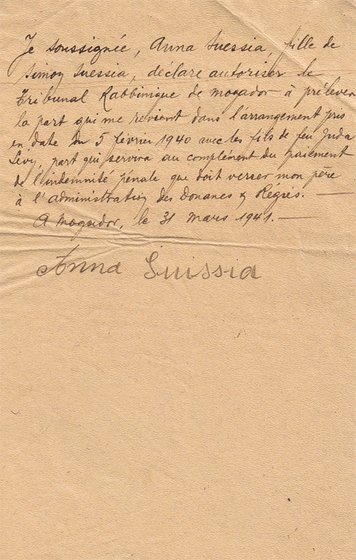 Je soussignée, Anna Suessia, fille de
Simon Suessia, déclare autoriser le
Tribunal Rabbinique de Mogador à prélever
la part qui me revient dans l'arrangement pris
en date du 5 février 1940 avec les fils de feu Juda
Lévy, part qui servira au complément du paiement
de l'indemnité pénale que doit verser mon père
à l'administration des Douanes & Régies.
A Mogador, le 31 mars 1941. —
Anna Suissia